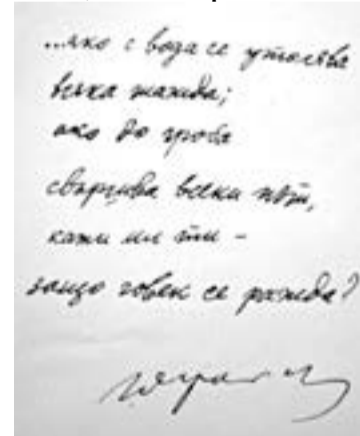 ...ако с вода се утолява
всяка жажда;
ако до гроба
свършва всеки път,
кажи ми ти –
защо човек се ражда?